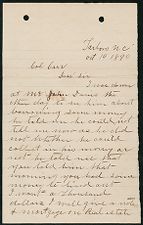 Tarboro N.C
Oct 10 1890
Col Carr
Dear Sir
I was down
at Mr John Dans the
other day to see him about
borrowing some money
he told me he could not
tell me now as he did
not whether he could
collect in his money or
not he told me that
you told him that
morning you had some
money to lend out
I want a thousand
dollars I will give a note
& mortgage on Real estate